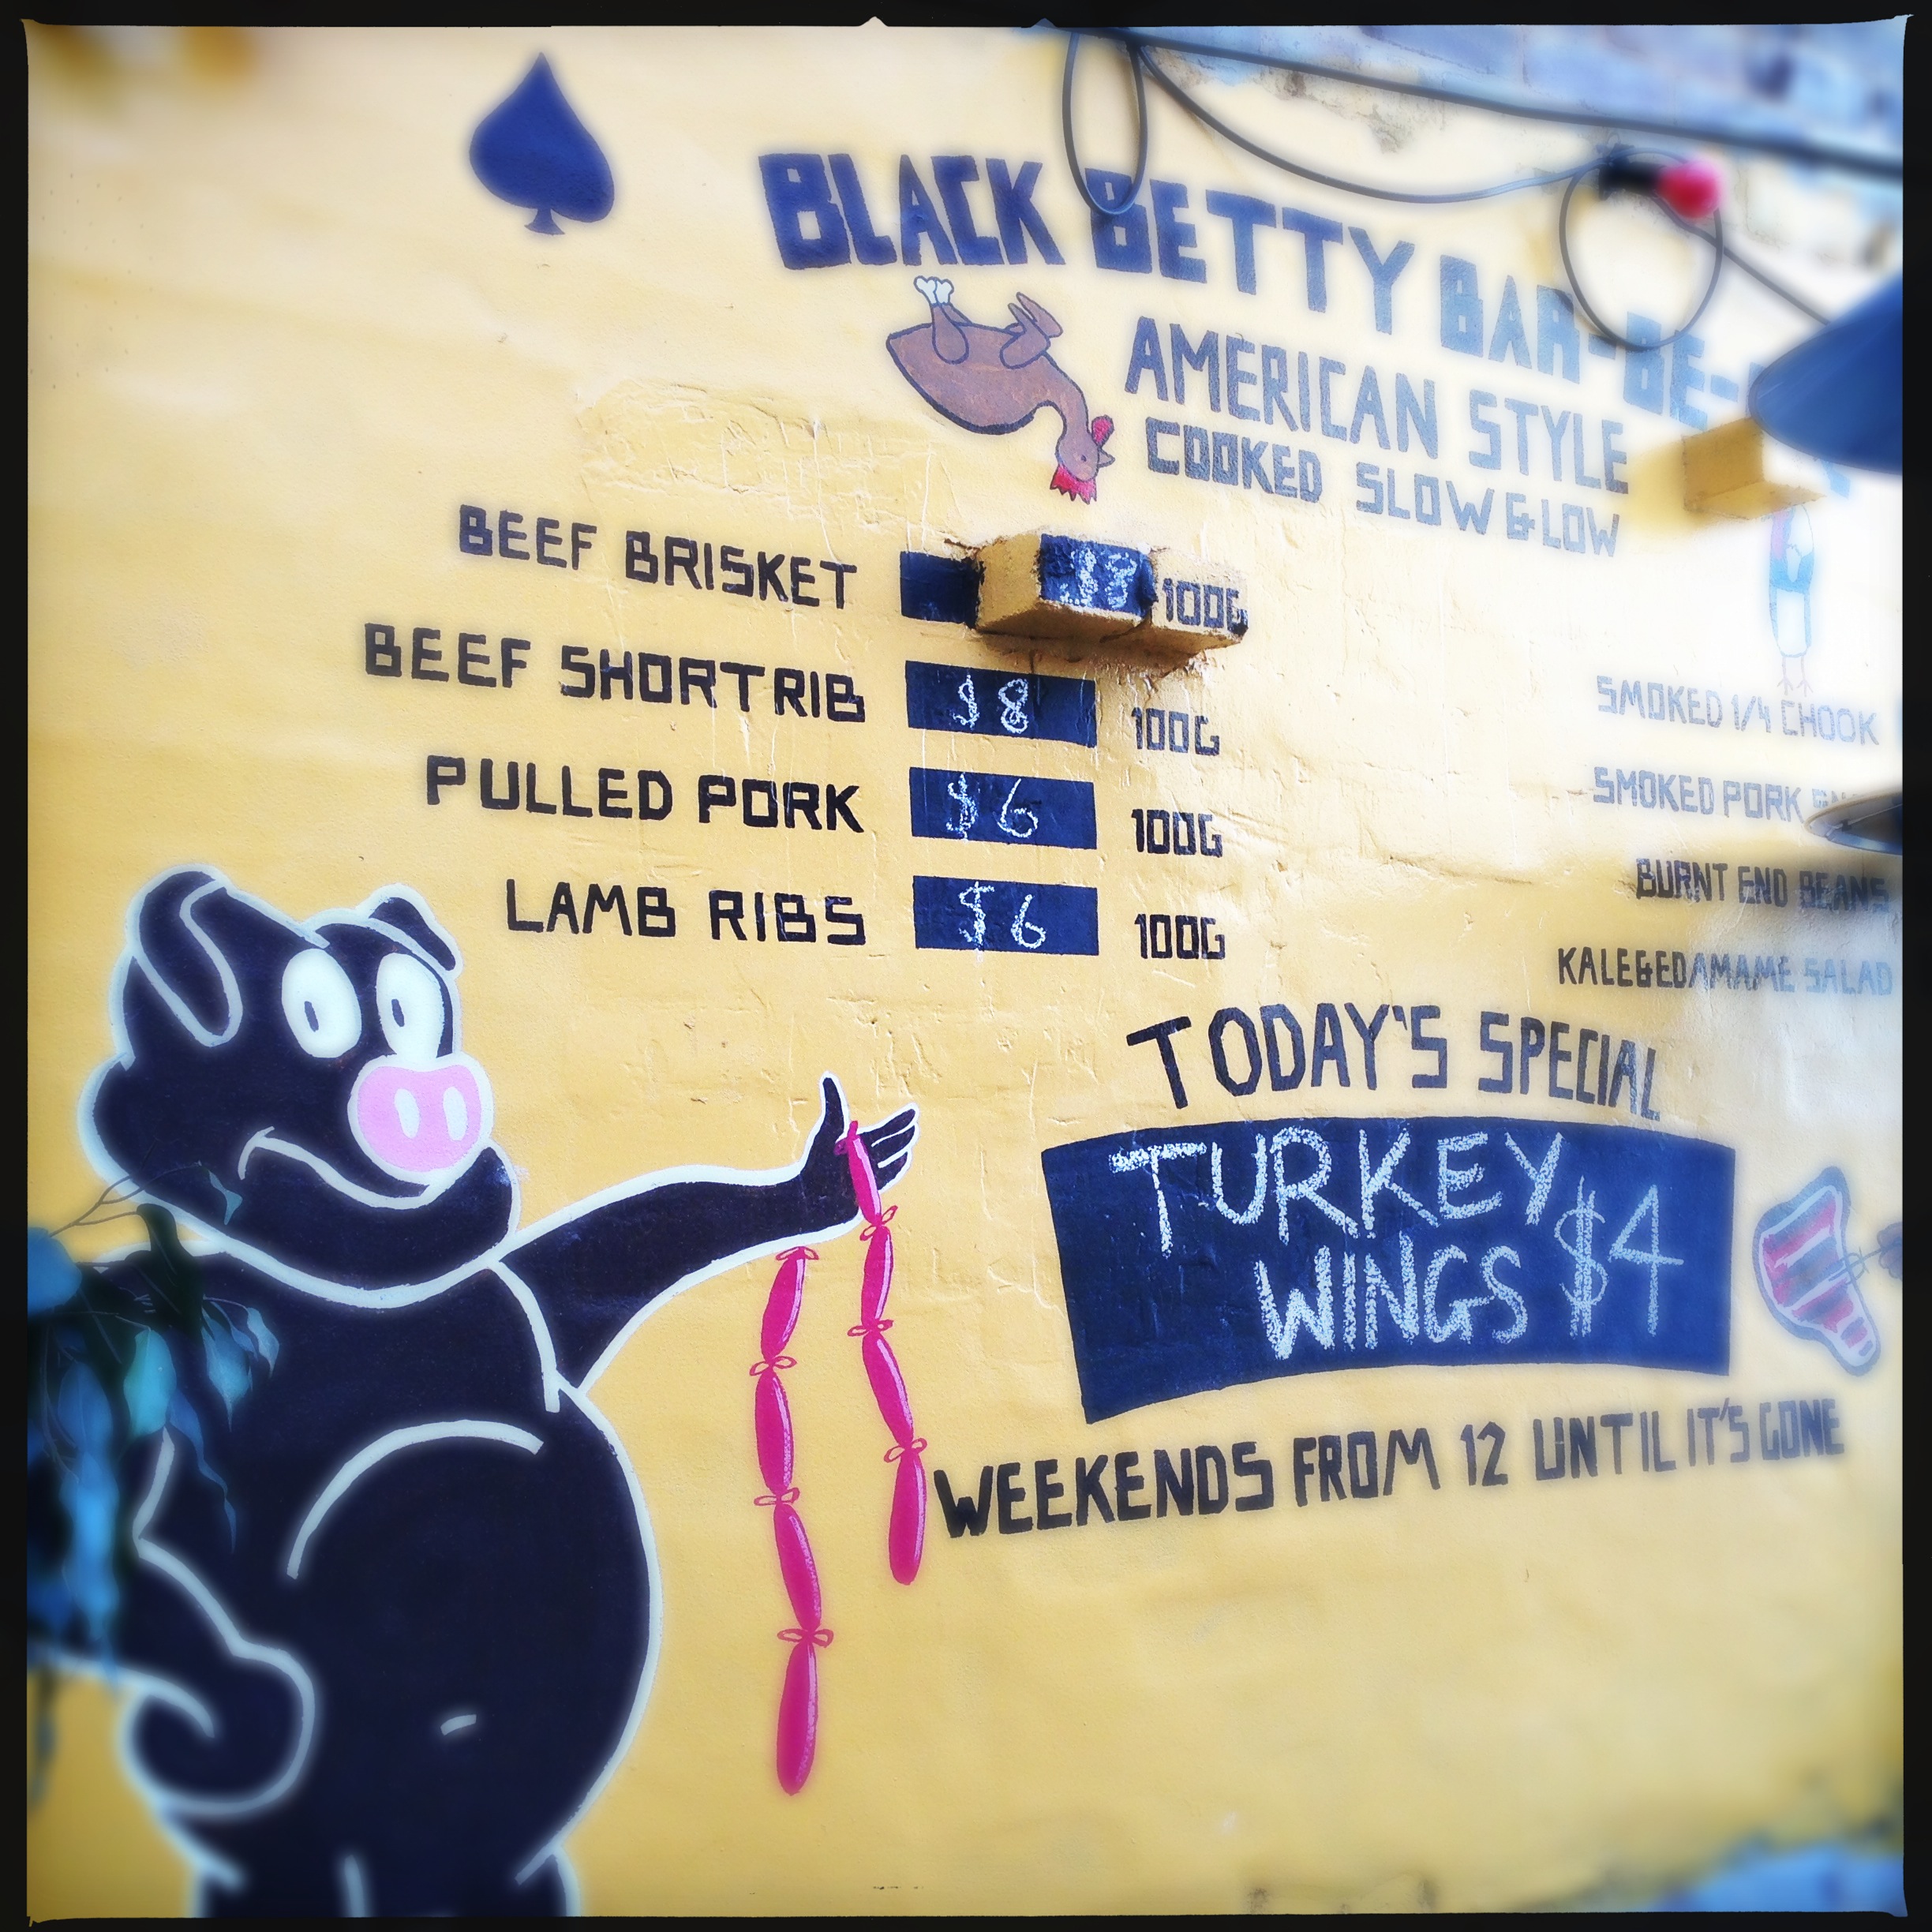 BLACK BETTY BAR-BE-
AMERICAN STYLE
COOKED SLOW & LOW
BEEF BRISKET 100G
BEEF SHORTRIB $8 100G
PULLED PORK $6 100G
LAMB RIBS $6 100G
SMOKED 1/4 CHOOK
SMOKED PORK
BURNT END BEANS
KALE&EDAMAME SALAD
TODAY'S SPECIAL
TURKEY
WINGS $4
WEEKENDS FROM 12 UNTIL IT'S GONE